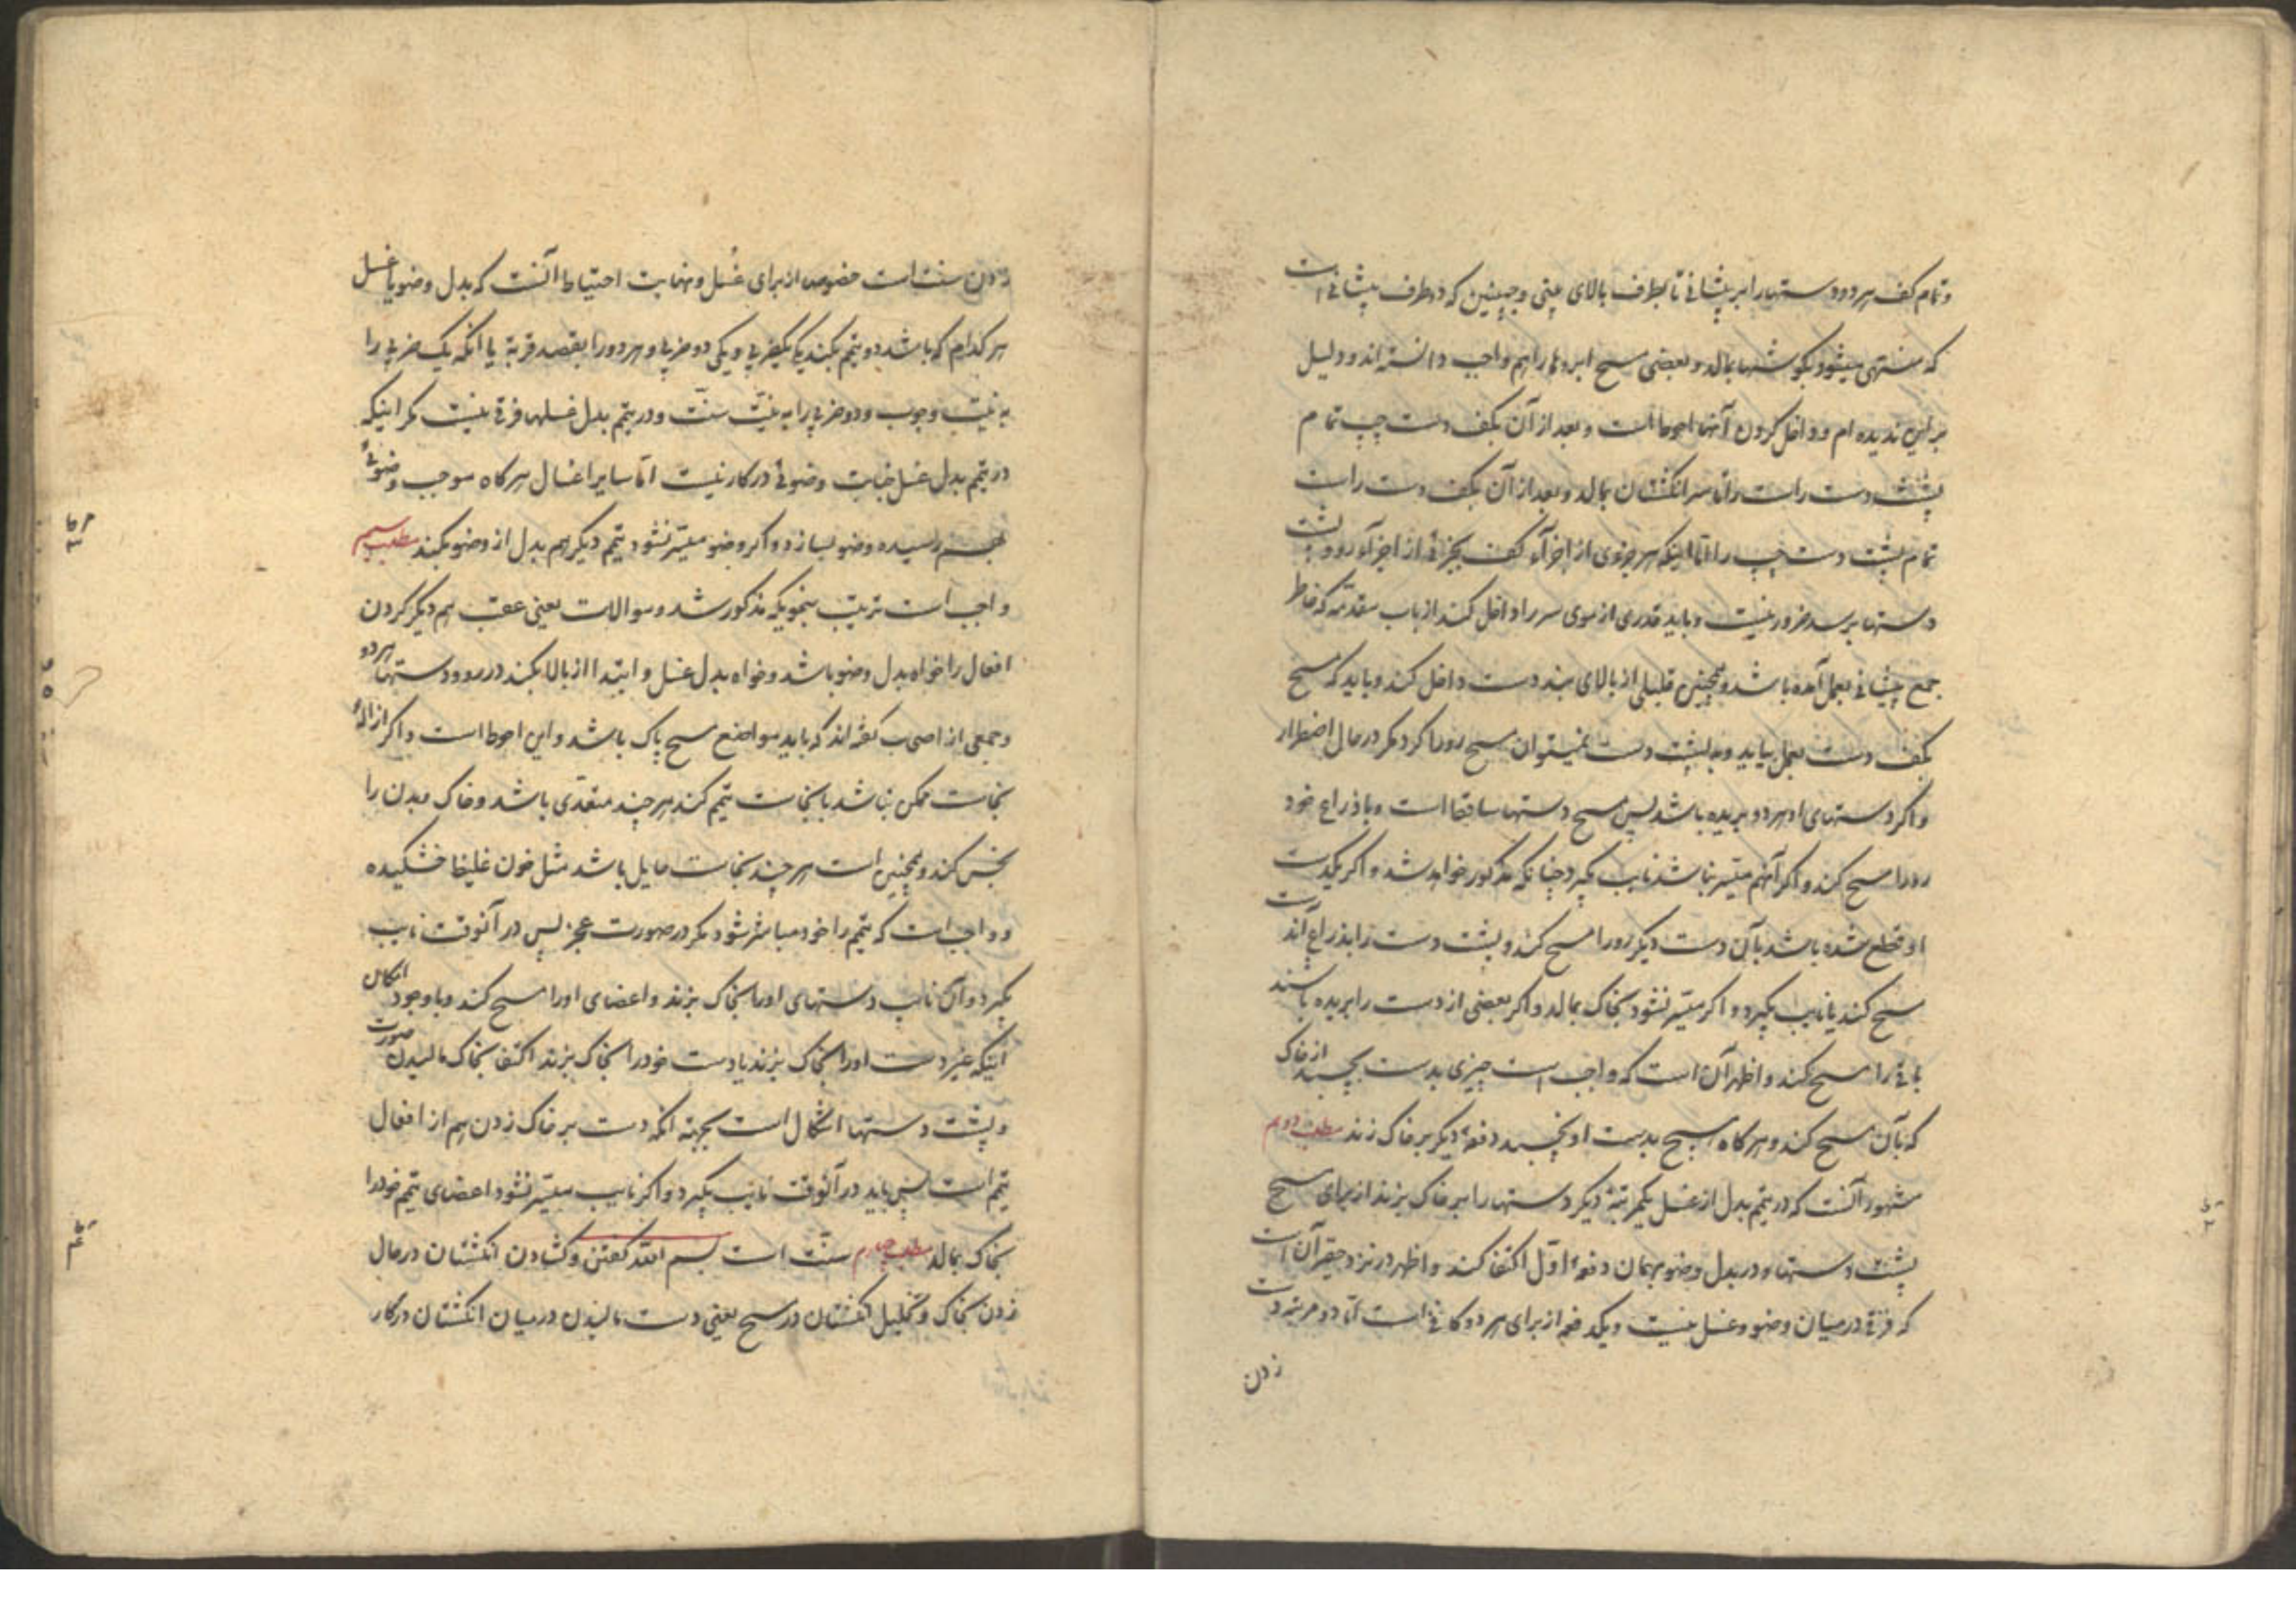 و تمام کف هر دو دستها را بر پیشانی تا بطرف بالای بینی و جبینین که دو طرف پیشانی است
که منتهی میشود بگوشها بمالد و بعضی مسح ابروها را هم واجب دانسته اند و دلیل
بر این ندیده ام و داخل کردن آنها احوط است و بعد از آن بکف دست چپ تمام
پشت دست راست را تا سر انگشتان بمالد و بعد از آن بکف دست راست
تمام پشت دست چپ را اما اینکه هر جزوی از اجزآء کف بجزئی از اجزآء رو و پشت
دستها برسد ضرور نیست و باید قدری از موی سر را داخل کند از باب مقدمه که خاطر
جمع پیشانی بعمل آمده باشد و همچنین قلیلی از بالای بند دست داخل کند و باید که مسح
بکف دست بعمل بیاید و به پشت دست نمیتوان مسح رو را کرد مگر در حال اضطرار
و اگر دستهای او هر دو بریده باشد پس مسح دستها ساقط است و با ذراع خود
رو را مسح کند و اگر آنهم میسر نباشد نایب بگیرد چنانکه مذکور خواهد شد و اگر یکدست
او قطع شده باشد بآن دست دیگر رو را مسح کند و پشت دست را بذراع آندست
مسح کند یا نایب بگیرد و اگر میسر نشود بخاک بمالد و اگر بعضی از دست را بریده باشند
باقی را مسح کند و اظهر آن است که واجب است چیزی بدست بچسبد از خاک
که بآن مسح کند و هرگاه هیچ بدست او نچسبد دفعهٔ دیگر بر خاک زند مطلب دویم
مشهور آنست که در تیمم بدل از غسل یکمرتبهٔ دیگر دستها را بر خاک بزند از برای مسح
پشت دستها و در بدل وضو بهمان دفعهٔ اوّل اکتفا کند و اظهر در نزد حقیر آن است
که فرقی در میان وضو و غسل نیست و یکدفعه از برای هر دو کافی است اما دو مرتبه دست
زدن
زدن سنت است خصوص از برای غُسل و نهایت احتیاط آنست که بدل وضو یا غسل
هر کدام که باشد دو تیمم بکند یکی یکضربی و یکی دو ضربی و هر دو را بقصد قربة یا آنکه یک ضربی را
به نیّت وجوب و دو ضربی را به نیّت سنّت و در تیمم بدل غسلها فرقی نیست مگر اینکه
در تیمم بدل غسل جنابت وضوئی در کار نیست امّا سایر اغسال هرگاه موجب وضوئی
بهم رسیده وضو بسازد و اگر وضو میسّر نشود تیمم دیگر هم بدل از وضو بکند مطلب سیم
واجب است ترتیب بنحویکه مذکور شد و موالات یعنی عقب هم دیگر کردن
افعال را خواه بدل وضو باشد و خواه بدل غسل و ابتدا از بالا بکند در رو و دستها هر دو
و جمعی از اصحاب گفته اند که باید مواضع مسح پاک باشد و این احوط است و اگر ازالهٔ
نجاست ممکن نباشد با نجاست تیمم کند هر چند متعدّی باشد و خاک و بدن را
نجس کند و همچنین است هر چند نجاست حایل باشد مثل خون غلیظ خشکیده
و واجب است که تیمم را خود مباشر شود مگر در صورت عجز پس در آنوقت نایب
بگیرد و آن نایب دستهای او را بخاک بزند و اعضای او را مسح کند و با وجود امکان
اینکه غیر دست او را بخاک بزند یا دست خود را بخاک بزند اکتفا بخاک مالیدن صورت
و پشت دستها اشکال است بجهة آنکه دست بر خاک زدن هم از افعال
تیمم است پس باید در آنوقت نایب بگیرد و اگر نایب میسّر نشود اعضای تیمم خود را
بخاک بمالد مطلب چهارم سنّت است بسم الله گفتن و گشادن انگشتان در حال
زدن بخاک و تخلیل انگشتان در مسح یعنی دست مالیدن در میان انگشتان در کار